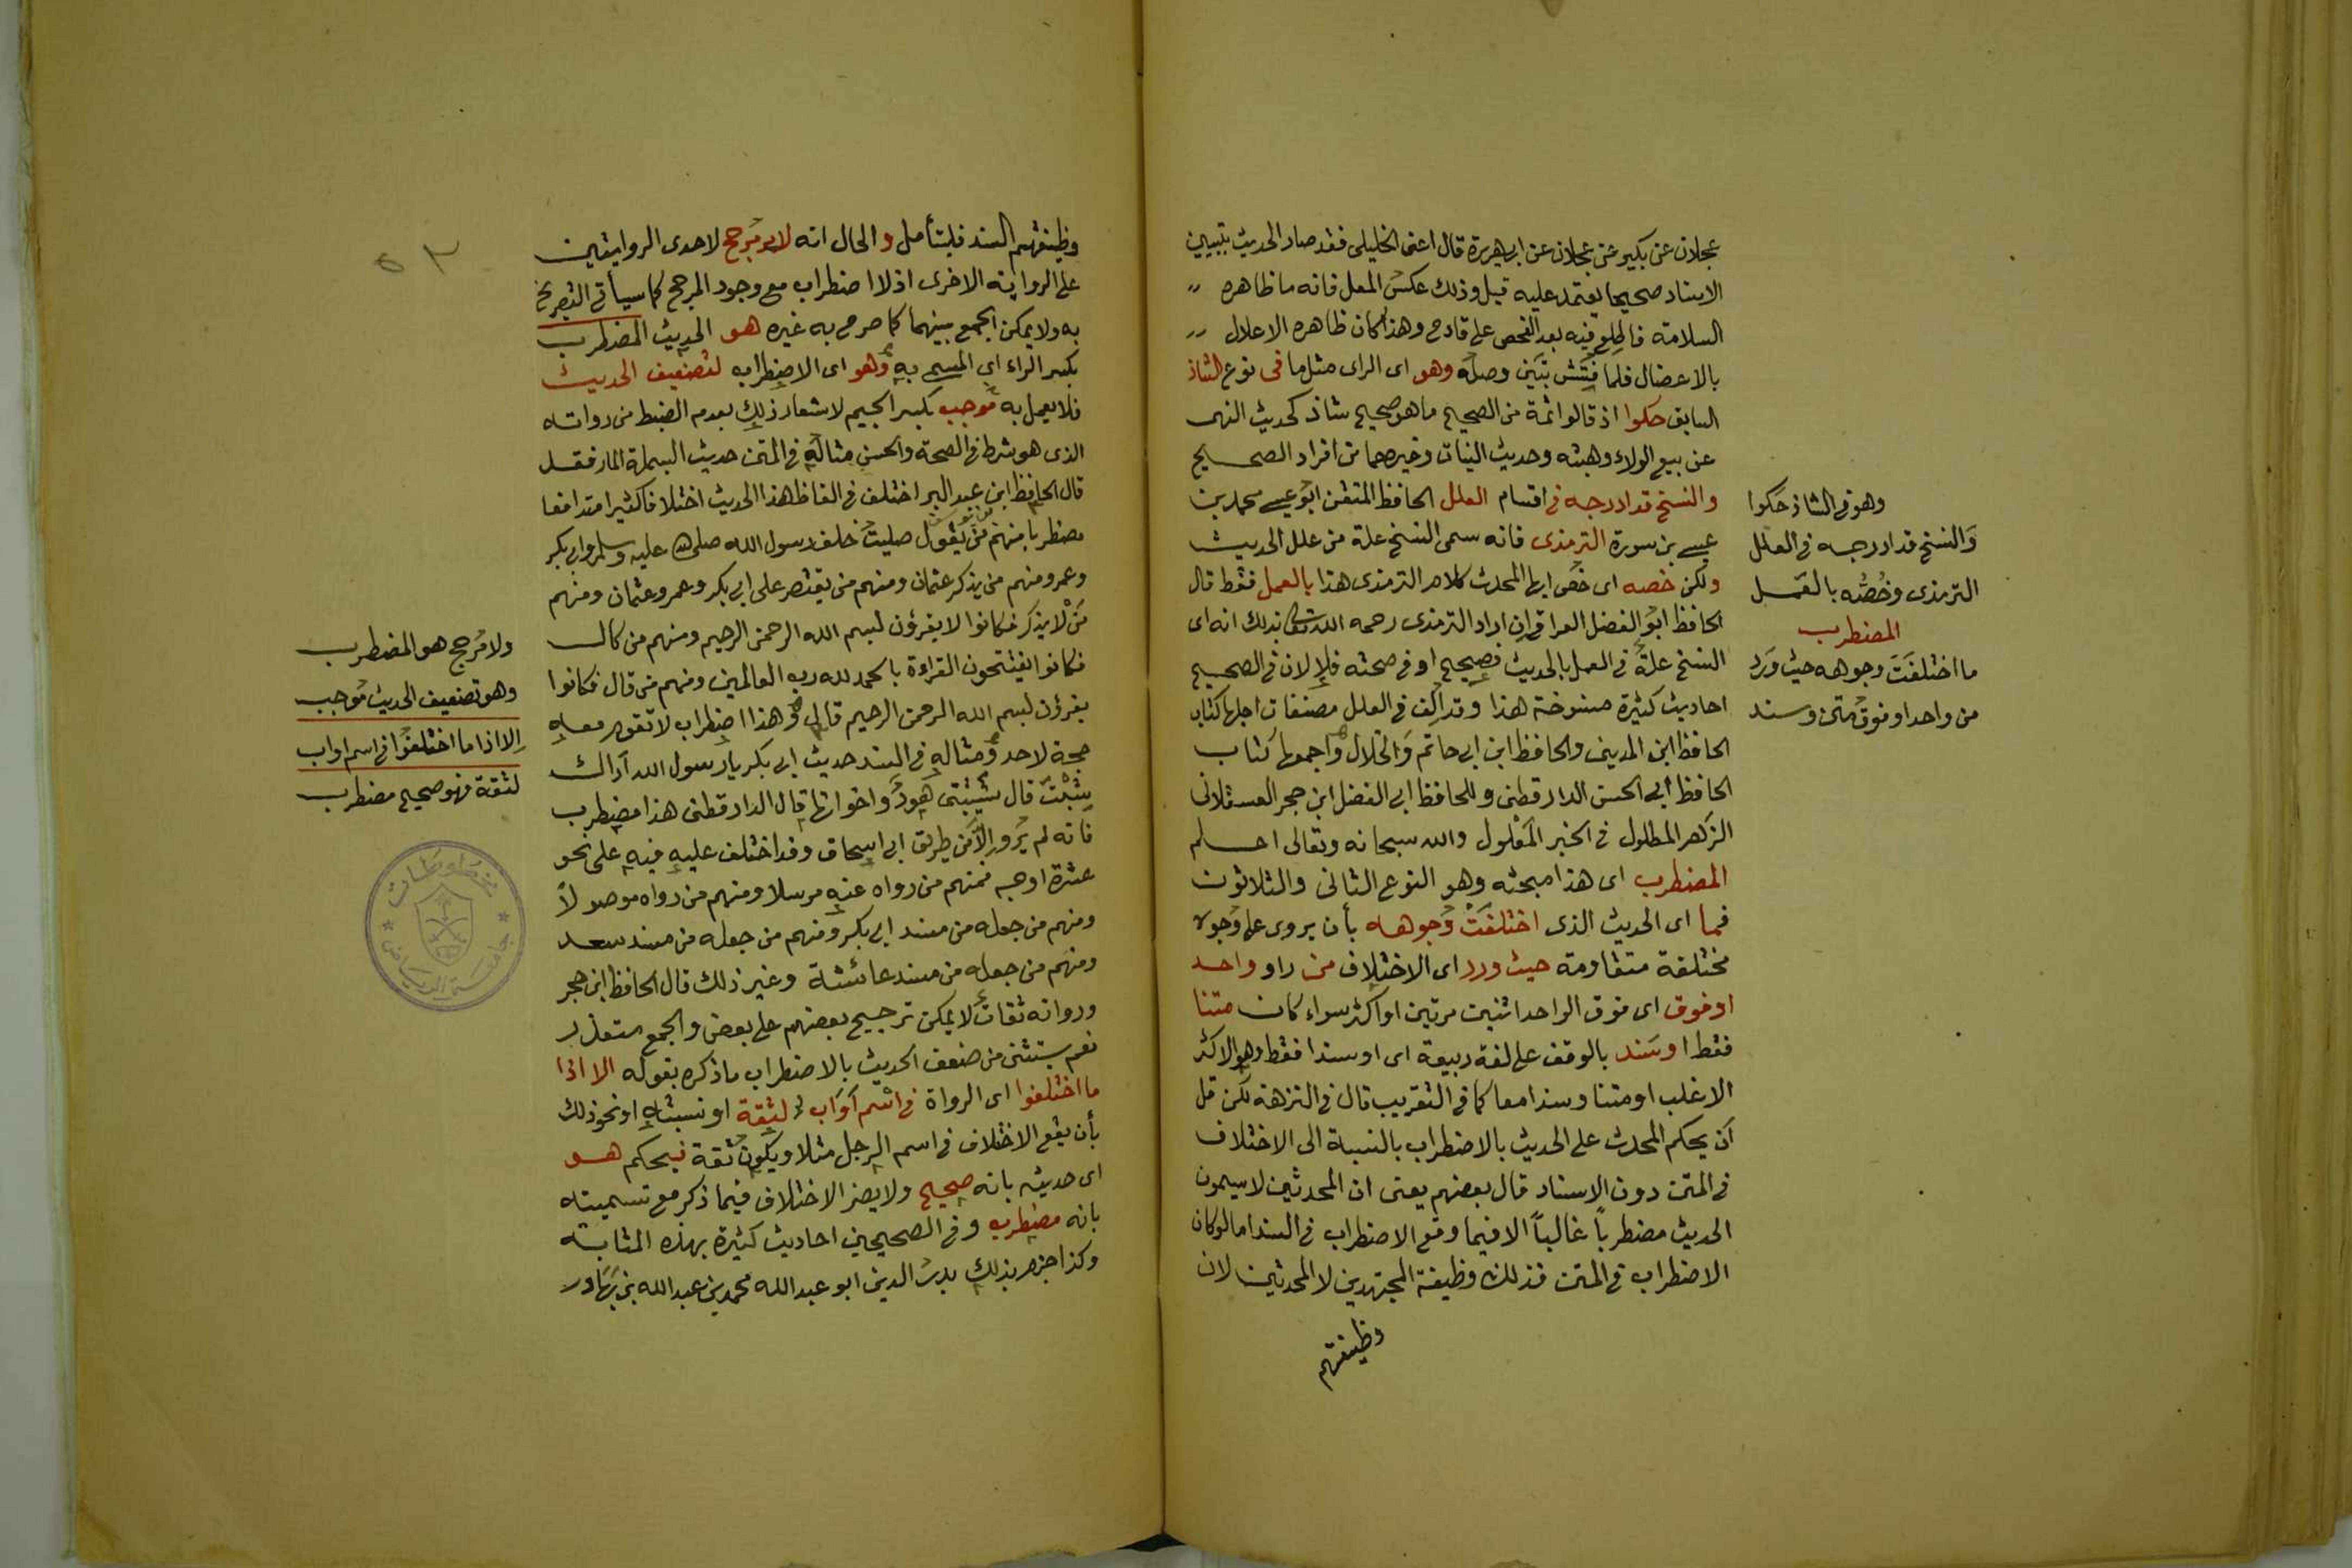 عجلان عن بكير عن عجلان عن ابى هريرة قال اعنى الخليلى فقد صار الحديث بتبيين
الاسناد صحيحا يعتمد عليه قيل وذلك عكس المعل فانه ما ظاهره
السلامة فاطلع فيه بعد الفحص على قادح وهذا كان ظاهره الاعلال
بالاعضال فلما فتش تبين وصله وهو اى الراى مثل ما فى نوع الشاذ
السابق حكوا اذ قالوا ثمة من الصحيح ما هو صحيح شاذ كحديث النهى
عن بيع الولاء وهبته وحديث النيات وغيرهما من افراد الصحيح
والنسخ قد ادرجه فى اقسام العلل الحافظ المتقن ابو عيسى محمد بن
عيسى بن سورة الترمذى فانه سمى النسخ علة من علل الحديث
ولكن خصه اى خص ايها المحدث كلام الترمذى هذا بالعمل فقط قال
الحافظ ابو الفضل العراقى ان اراد الترمذى رحمه الله تعالى بذلك انه اى
النسخ علة فى العمل بالحديث فصحيح او فى صحته فلا لان فى الصحيح
احاديث كثيرة منسوخة هذا وقد الف فى العلل مصنفات اجلها كتاب
الحافظ ابن المدينى والحافظ ابن ابى حاتم والخلال واجمعها كتاب
الحافظ ابى الحسن الدارقطنى وللحافظ ابى الفضل ابن حجر العسقلانى
الزهر المطلول فى الخبر المعلول والله سبحانه وتعالى اعلم
المضطرب اى هذا مبحثه وهو النوع الثانى والثلاثون
فما اى الحديث الذى اختلفت وجوهه بأن يروى على وجوه
مختلفة متقاومة حيث ورد اى الاختلاف من راو واحد
او فوق اى فوق الواحد اثنين مرتين او اكثر سواء كان متنا
فقط او سند بالوقف على لغة ربيعة اى او سندا فقط وهو الاكثر
الاغلب او متنا وسندا معا كما فى التقريب قال فى النزهة لكن قل
أن يحكم المحدث على الحديث بالاضطراب بالنسبة الى الاختلاف
فى المتن دون الاسناد قال بعضهم يعنى ان المحدثين لا يسمون
الحديث مضطرباً غالباً الا فيما وقع الاضطراب فى السند اما لو كان
الاضطراب فى المتن فذلك وظيفة المجتهدين لا المحدثين لان
وظيفتهم
وهو فى الشاذ حكوا
والنسخ قد ادرجه فى العلل
الترمذى وخصه بالعمل
المضطرب
ما اختلفت وجوهه حيث ورد
من واحد او فوق متن وسند
٥٣
وظيفتهم السند فليتأمل و الحال انه لا مرجح لاحدى الروايتين
على الرواية الاخرى اذ لا اضطراب مع وجود المرجح كما سيأتى التصريح
به ولا يمكن الجمع بينهما كما صرح به غيره هو الحديث المضطرب
بكسر الراء اى المسمى به وهو اى الاضطراب لتضعيف الحديث
فلا يعمل به موجب بكسر الجيم لاشعار ذلك بعدم الضبط من رواته
الذى هو شرط فى الصحة والحسن مثاله فى المتن حديث البسملة المار فقد
قال الحافظ ابن عبد البر اختلف فى الفاظ هذا الحديث اختلافا كثيرا متدافعا
مضطربا منهم من يقول صليت خلف رسول الله صلى الله عليه وسلم وابى بكر
وعمر ومنهم من يذكر عثمان ومنهم من يقتصر على ابى بكر وعمر وعثمان ومنهم
من لا يذكر فكانوا لا يقرؤن بسم الله الرحمن الرحيم ومنهم من قال
فكانوا يفتتحون القراءة بالحمد لله رب العالمين ومنهم من قال فكانوا
يقرؤن بسم الله الرحمن الرحيم قال وهذا اضطراب لا تقوم معه
حجة لاحد ومثاله فى السند حديث ابى بكر يا رسول الله أراك
شبت قال شيبتنى هود واخواتها قال الدارقطنى هذا مضطرب
فانه لم يرو الا من طريق ابى اسحاق وقد اختلف عليه فيه على نحو
عشرة اوجه فمنهم من رواه عنه مرسلا ومنهم من رواه موصولاً
ومنهم من جعله من مسند ابى بكر ومنهم من جعله من مسند سعد
ومنهم من جعله من مسند عائشة وغير ذلك قال الحافظ ابن حجر
ورواته ثقات لا يمكن ترجيح بعضهم على بعض والجمع متعذر
نعم يستثنى من ضعف الحديث بالاضطراب ما ذكره بقوله الا اذا
ما اختلفوا اى الرواة فى اسم أو اب لثقة او نسبته او نحو ذلك
بأن يقع الاختلاف فى اسم الرجل مثلا ويكون ثقة فيحكم هو
اى حديثه بانه صحيح ولا يضر الاختلاف فيما ذكر مع تسميته
بانه مضطرب وفى الصحيحين احاديث كثيرة بهذه المثابة
وكذا جزم بذلك بدر الدين ابو عبد الله محمد بن عبد الله بن بهادر
ولا مرجح هو المضطرب
وهو تضعيف الحديث موجب
الا اذا ما اختلفوا فى اسم او اب
لثقة فهو صحيح مضطرب